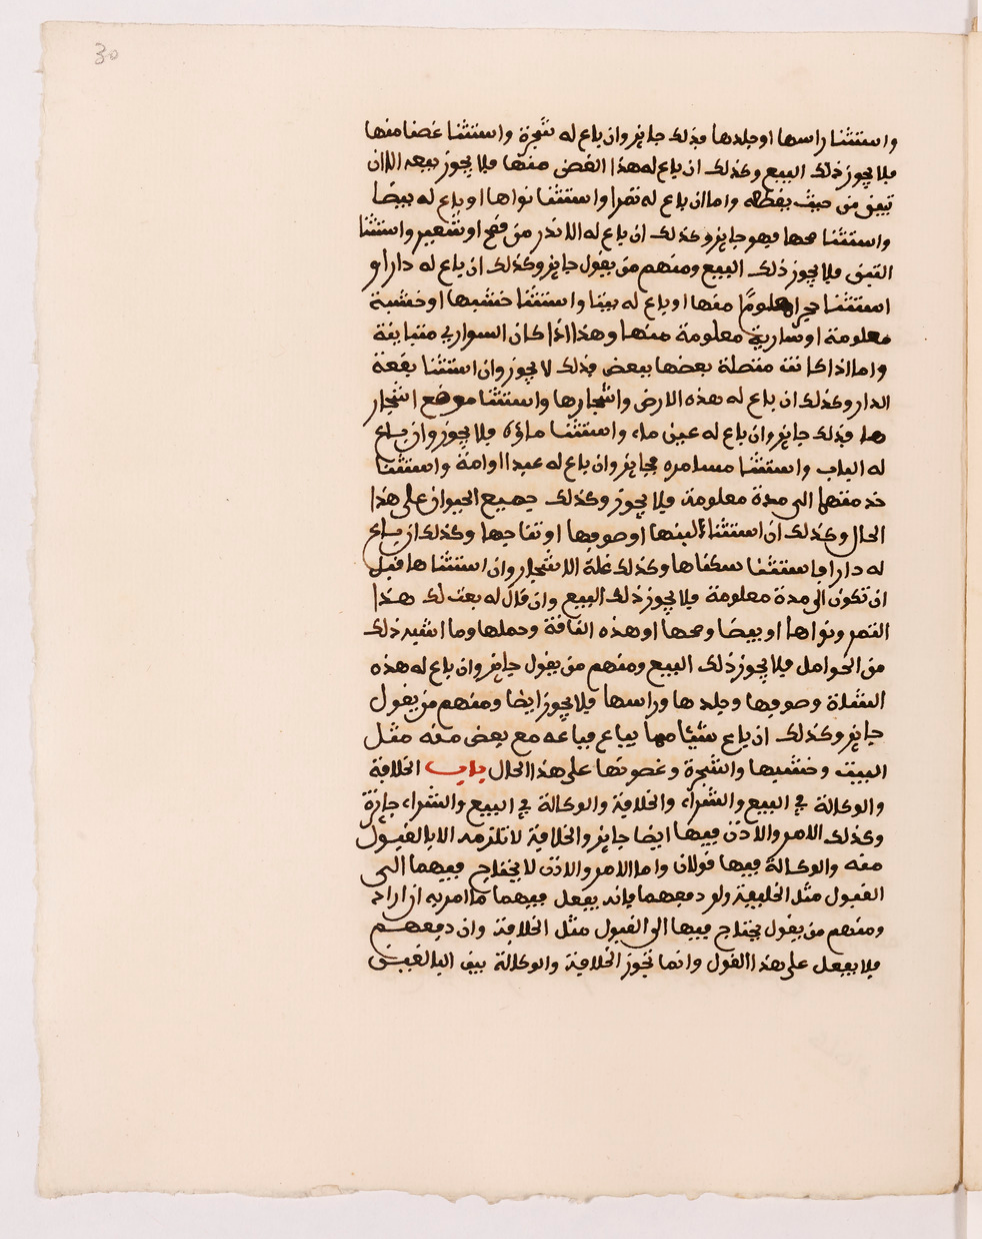 30
واستثنا راسها او جلدها فذلك جايز وان باع له شجرة واستثنا غصنا منها
فلا يجوز ذلك البيع وكذلك ان باع له هذا الغصن منها فلا يجوز بيعه الا ان
تبين من حيث يقطعه واما ان باع له تمرا واستثنا نواها او باع له بيضا
واستثنا محها فهو جايز وكذلك ان باع له الاندر من قمح او شعير واستثنا
التبن فلا يجوز ذلك البيع ومنهم من يقول جايز وكذلك ان باع له دارا و
استثنا معلوما منها او باع له بيتا واستثنا خشبها او خشبة
معلومة او سارية معلومة منها وهذا اذا كان السواري متباينة
واما اذا كانت متصلة بعضها ببعض فذلك لا يجوز وان استثنا بقعة
الدار وكذلك ان باع له هذه الارض واشجارها واستثنا موضع اشجار
ها فذلك جايز وان باع له عين ماء واستثنا ماؤه فلا يجوز وان باع
له الباب واستثنا مسامره فجايز وان باع له عبدا او امة واستثنا
خدمتهما الى مدة معلومة فلا يجوز وكذلك جميع الحيوان على هذا
الحال وكذلك ان استثنا البنها او صوفها او نتاجها وكذلك ان باع
له دارا فاستثنا سكناها وكذلك غلة الاشجار وان استثناها قبل
ان تكون الى مدة معلومة فلا يجوز ذلك البيع وان قال له بعت لك هذا
التمر ونواها او بيضا ومحها او هذه الناقة وحملها وما اشبه ذلك
من الحوامل فلا يجوز ذلك البيع ومنهم من يقول جايز وان باع له هذه
الشاة وصوفها وجلدها وراسها فلا يجوز ايضا ومنهم من يقول
جايز وكذلك ان باع شيئا مما يباع فباعه مع بعض منه مثل
البيت وخشبها والشجرة وغصونها على هذا الحال باب الخلافة
والوكالة في البيع والشراء والخلافة والوكالة في البيع والشراء جايزة
وكذلك الامر والاذن فيها ايضا جايز والخلافة لا تلزمه الا بالقبول
منه والوكالة فيها قولان واما الامر والاذن لا يحتاج فيهما الى
القبول مثل الخليفة ولو دفعهما فانه يفعل فيهما ما امر به ان اراد
ومنهم من يقول يحتاج فيها الى القبول مثل الخلافة وان دفعهم
فلا يفعل على هذا القول وانما تجوز الخلافة والوكالة بين البالغين